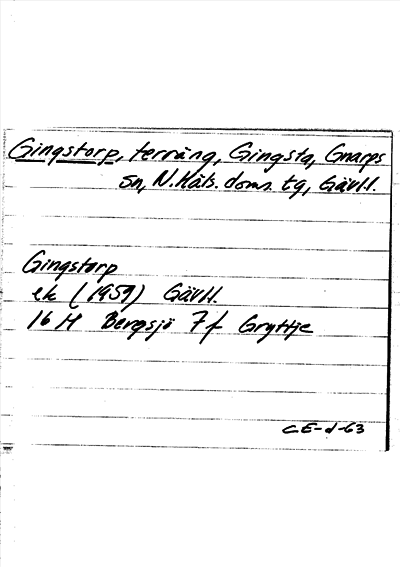 Gingstorp, terräng, Gingsta, Gnarps
sn, N. Häls. doms. tg, Gävll.
Gingstorp
ek (1959) Gävll.
16 H Bergsjö 7 f Gryttje
CE-d-63